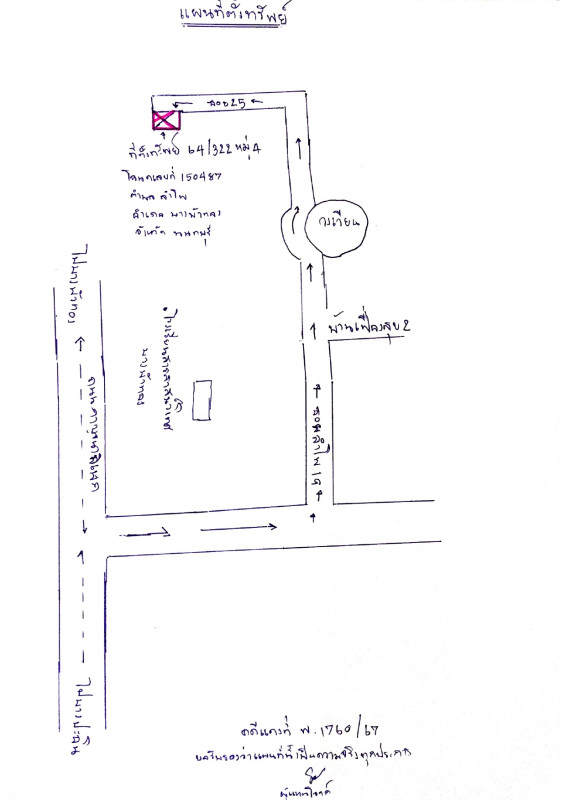 แผนที่ตั้งทรัพย์
ซอย25
ที่ตั้งทรัพย์ 64/322 หมู่ 4
โฉนดเลขที่ 150487
ตำบล ลำโพ
อำเภอ บางบัวทอง
จังหวัด นนทบุรี
วงเวียน
บ้านเฟื่องสุข 2
ไปบางบัวทอง
ถนนกาญจนาภิเษก
โรงเรียนสารสาสน์วิเทศ
บางบัวทอง
ไปบางปะอิน
คดีแดงที่ พ.1760/67
ขอรับรองว่าแผนที่นี้เป็นความจริงทุกประการ
ผู้แทนโจทก์